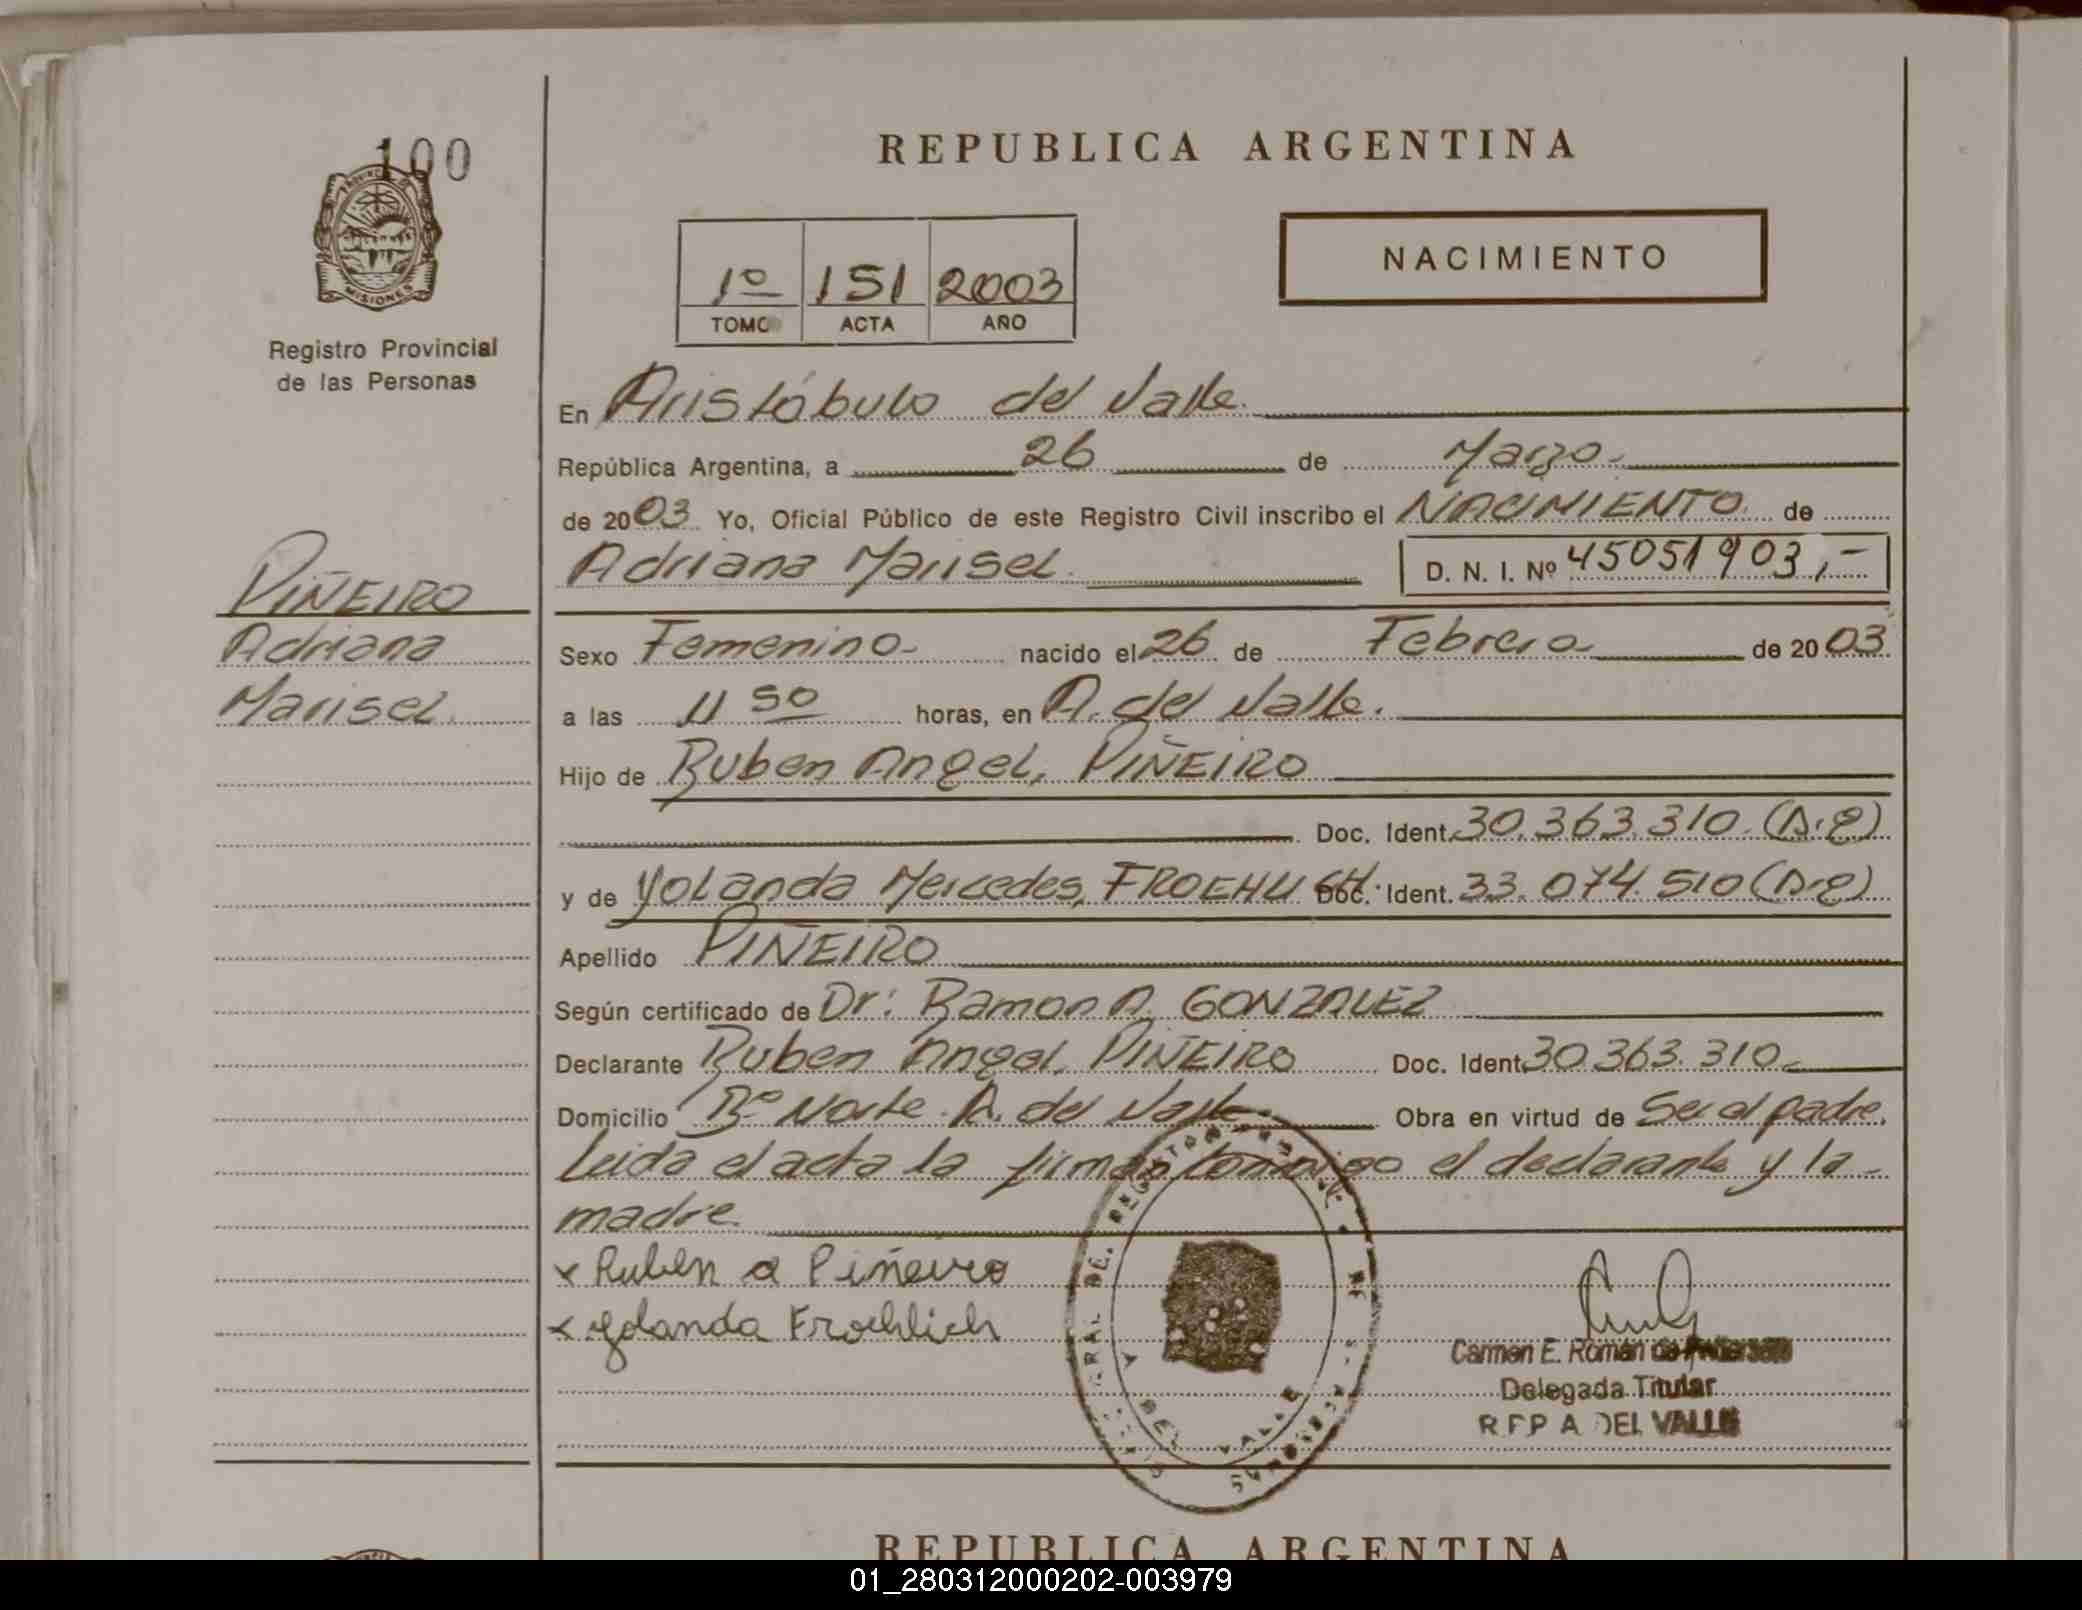 100
PROVINCIA DE
MISIONES
Registro Provincial
de las Personas
PIÑEIRO
Adriana
Marisel
REPUBLICA ARGENTINA
1º 151 2003
TOMO ACTA AÑO
NACIMIENTO
En Aristóbulo del Valle.
República Argentina, a 26 de Marzo.
de 2003 Yo, Oficial Público de este Registro Civil inscribo el NACIMIENTO de
Adriana Marisel D. N. I. Nº 45051903,-
Sexo Femenino- nacido el 26 de Febrero de 2003
a las 11 50 horas, en A. del Valle.
Hijo de Ruben Angel, PIÑEIRO
Doc. Ident. 30.363.310.
y de Yolanda Mercedes, Doc. Ident. 33.074.510
Apellido PIÑEIRO
Según certificado de Dr: Ramon A. GONZALEZ
Declarante Ruben Angel, PIÑEIRO Doc. Ident. 30.363.310-
Domicilio Bº Norte A. del Valle. Obra en virtud de Ser el padre.
Leida el acta la firman conmigo el declarante y la-
madre.
x Ruben a Piñeiro
x Yolanda Froehlich
VALLE
Carmen E. Román de
Delegada Titular
A DEL VALLE
REPUBLICA ARGENTINA
01_280312000202-003979